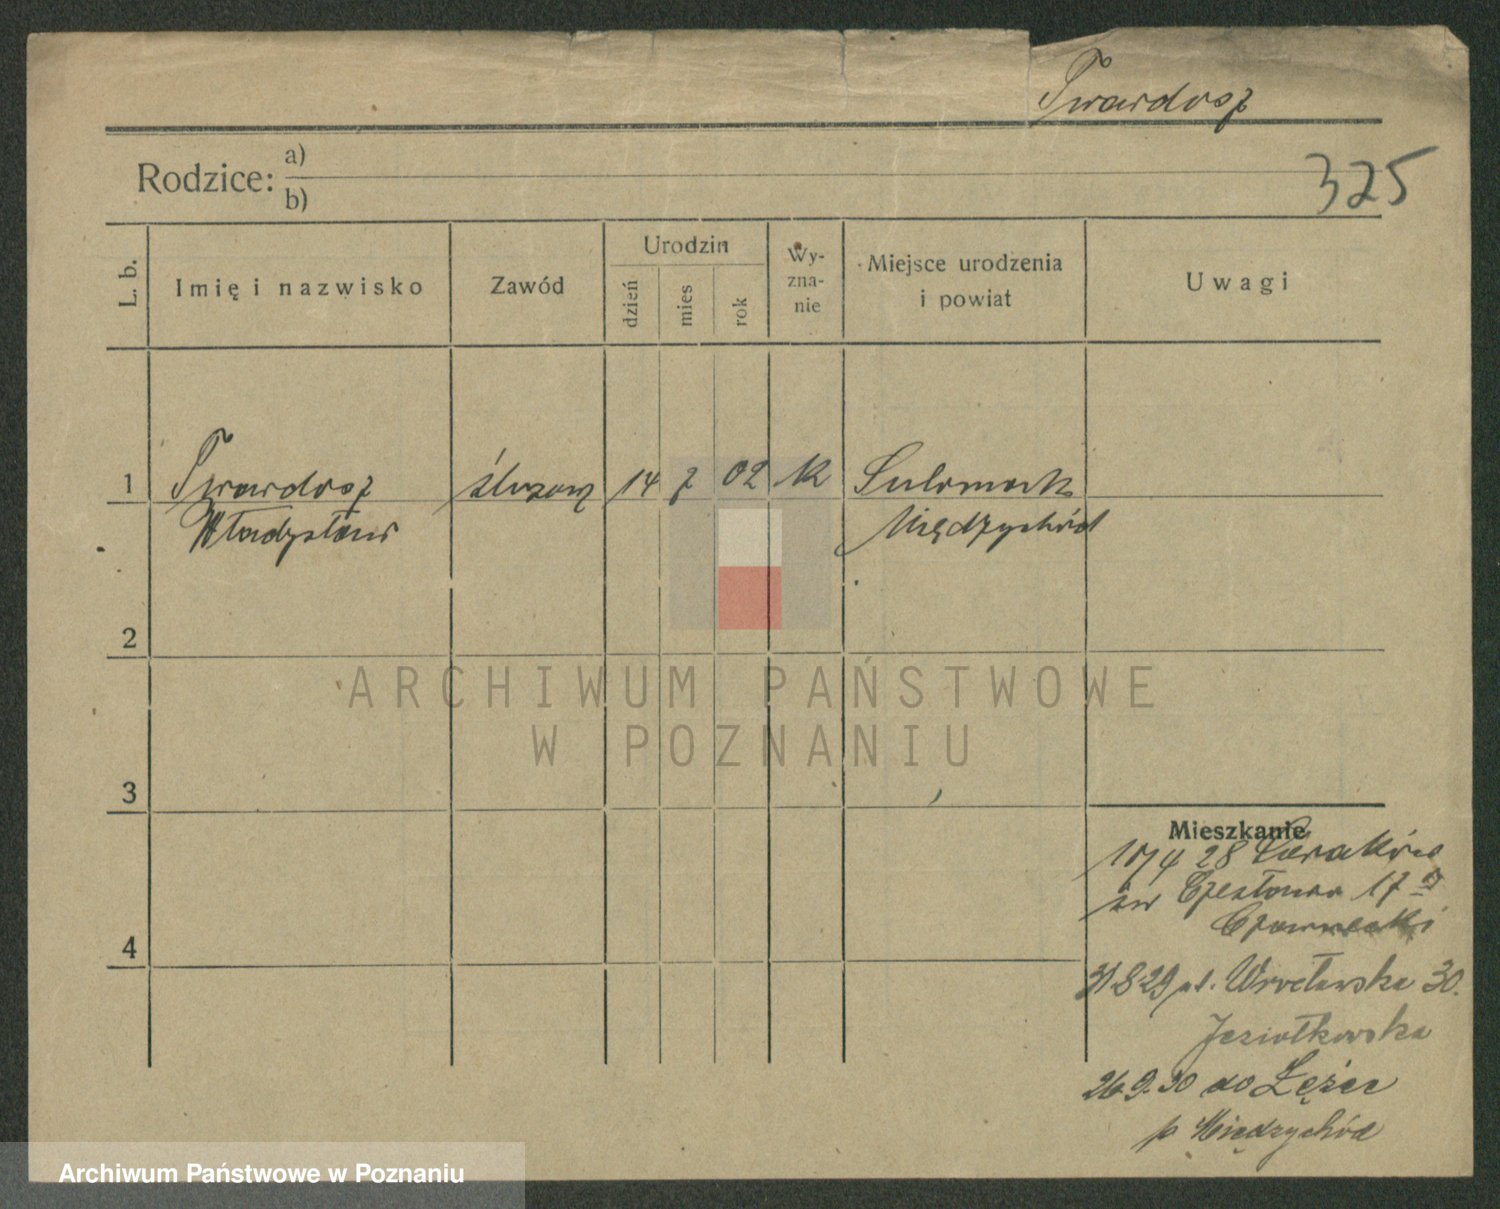 Twardosz
325
Rodzice: a)
b)
L. b. Imię i nazwisko Zawód Urodzin dzień mies rok Wy-zna-nie Miejsce urodzenia i powiat Uwagi
1 Twardosz ślusarz 14 7 02 k
Władysław Międzychód
2
3
4
Mieszkanie
28
św 17
Czarnecki
31 8 29 ul. Wrocławska 30.
Jesiołkowska
26 9. 30 do
p. Międzychód
ARCHIWUM PAŃSTWOWE
W POZNANIU
Archiwum Państwowe w Poznaniu